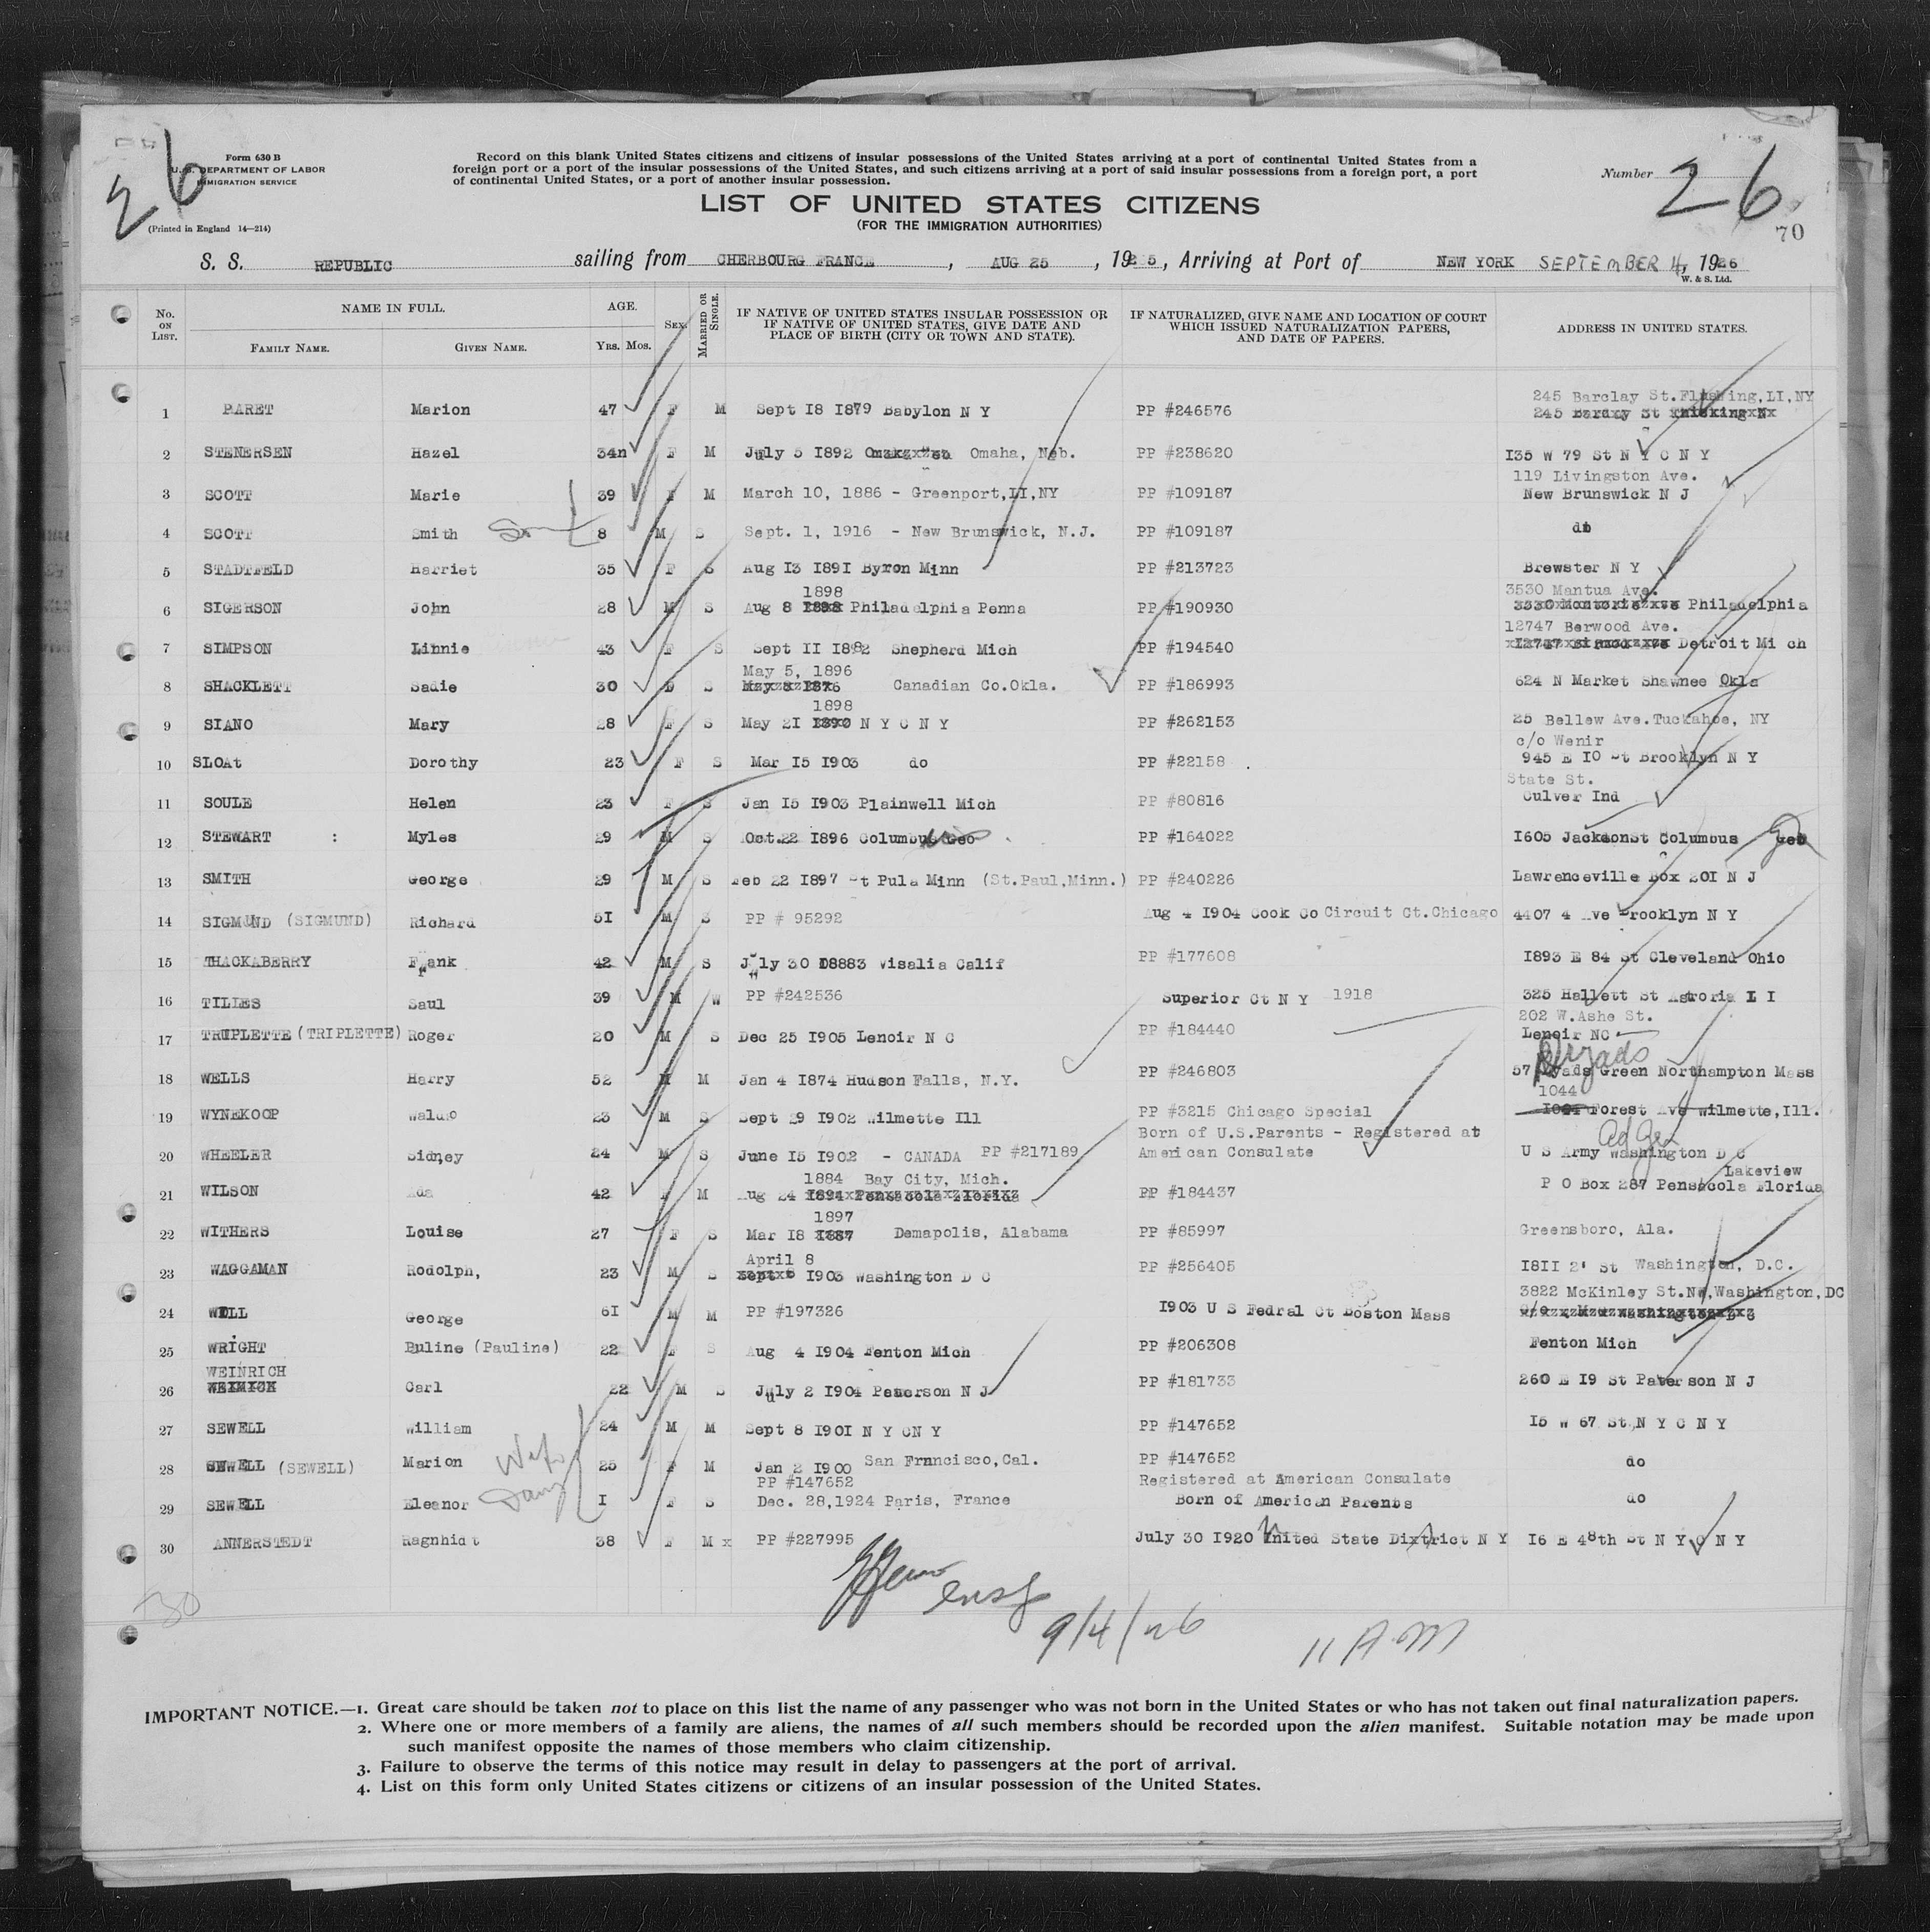 26
Form 630 B
U.S. DEPARTMENT OF LABOR
IMMIGRATION SERVICE
(Printed in England 14—214)
Record on this blank United States citizens and citizens of insular possessions of the United States arriving at a port of continental United States from a
foreign port or a port of the insular possessions of the United States, and such citizens arriving at a port of said insular possessions from a foreign port, a port
of continental United States, or a port of another insular possession.
Number 26
70
LIST OF UNITED STATES CITIZENS
(FOR THE IMMIGRATION AUTHORITIES)
S. S. REPUBLIC sailing from CHERBOURG FRANCE, AUG 25, 19 Arriving at Port of NEW YORK SEPTEMBER 4, 1926
W. & S. Ltd.
No. ON LIST. NAME IN FULL. FAMILY NAME. GIVEN NAME. AGE. YRS. MOS. SEX. MARRIED OR SINGLE. IF NATIVE OF UNITED STATES INSULAR POSSESSION OR IF NATIVE OF UNITED STATES, GIVE DATE AND PLACE OF BIRTH (CITY OR TOWN AND STATE). IF NATURALIZED, GIVE NAME AND LOCATION OF COURT WHICH ISSUED NATURALIZATION PAPERS, AND DATE OF PAPERS. ADDRESS IN UNITED STATES.
245 Barclay St.Flushing,LI,NY
1 PARET Marion 47 F M Sept I8 I879 Babylon N Y PP #246576
2 STENERSEN Hazel 34 F M July 5 I892 Omaha, Neb. PP #238620 I35 W 79 St N Y C N Y
119 Livingston Ave.
3 SCOTT Marie 39 F M March 10, 1886 - Greenport,LI,NY PP #109187 New Brunswick N J
4 SCOTT Smith Son 8 M S Sept. 1, 1916 - New Brunswick, N.J. PP #109187 do
5 STADTFELD Harriet 35 F S Aug I3 I89I Byron Minn PP #213723 Brewster N Y
1898 3530 Mantua Ave.
6 SIGERSON John 28 M S Aug 8 Philadelphia Penna PP #190930 Philadelphia
12747 Berwood Ave.
7 SIMPSON Linnie 43 F S Sept II I882 Shepherd Mich PP #194540 Detroit Mi ch
May 5, 1896
8 SHACKLETT Sadie 30 S Canadian Co.Okla. PP #186993 624 N Market Shawnee Okla
1898
9 SIANO Mary 28 F S May 2I N Y C N Y PP #262153 25 Bellew Ave.Tuckahoe, NY
c/o Wenir
10 SLOAt Dorothy 23 F S Mar I5 I903 do PP #22158 945 E IO St Brooklyn N Y
State St.
11 SOULE Helen 23 F S Jan I5 I903 Plainwell Mich PP #80816 Culver Ind
12 STEWART : Myles 29 M S Oct.22 I896 Columbus Geo PP #164022 I605 Jackson St Columbus Geo
13 SMITH George 29 M S Feb 22 I897 St Pula Minn (St.Paul,Minn.) PP #240226 Lawrenceville Box 20I N J
14 SIGMUND (SIGMUND) Richard 5I M S PP # 95292 Aug 4 I904 Cook Co Circuit Ct.Chicago 4407 4 Ave Brooklyn N Y
15 THACKABERRY Frank 42 M S July 30 Visalia Calif PP #177608 I893 E 84 St Cleveland Ohio
16 TILLES Saul 39 M W PP #242536 Superior Ct N Y 1918 325 Hallett St Astoria L I
202 W.Ashe St.
17 TRUPLETTE (TRIPLETTE) Roger 20 M S Dec 25 I905 Lenoir N C PP #184440 Lenoir NC
Dryads
18 WELLS Harry 52 M M Jan 4 I874 Hudson Falls, N.Y. PP #246803 57 Dryads Green Northampton Mass
1044
19 WYNEKOOP Waldo 23 M S Sept 29 I902 Wilmette Ill PP #3215 Chicago Special Forest Ave Wilmette,Ill.
Born of U.S.Parents - Registered at
20 WHEELER Sidney 24 M S June I5 I902 - CANADA PP #217189 American Consulate U S Army Washington D C
1884 Bay City, Mich. Lakeview
21 WILSON Ada 42 F M Aug 24 PP #184437 P O Box 287 Pensacola Florida
1897
22 WITHERS Louise 27 F S Mar I8 Demapolis, Alabama PP #85997 Greensboro, Ala.
April 8
23 WAGGAMAN Rodolph, 23 M S I903 Washington D C PP #256405 I8II 2' St Washington, D.C.
3822 McKinley St.NW,Washington,DC
24 WILL George 6I M M PP #197326 I903 U S Fedral Ct Boston Mass
25 WRIGHT Puline (Pauline) 22 F S Aug 4 I904 Fenton Mich PP #206308 Fenton Mich
WEINRICH
26 Carl 22 M S July 2 I904 Paterson N J PP #181733 260 E I9 St Paterson N J
27 SEWELL William 24 M M Sept 8 I90I N Y CN Y PP #147652 I5 W 67 St N Y C N Y
28 SEWELL (SEWELL) Marion Wife 25 F M Jan 2 I900 San Frncisco,Cal. PP #147652 do
PP #147652 Registered at American Consulate
29 SEWELL Eleanor Daug I F S Dec. 28,1924 Paris, France Born of American Parents do
30 ANNERSTEDT Ragnhidt 38 F M x PP #227995 July 30 I920 United State District N Y I6 E 48th St N Y C N Y
30
9/4/26 11 A.M
IMPORTANT NOTICE.—1. Great care should be taken not to place on this list the name of any passenger who was not born in the United States or who has not taken out final naturalization papers.
2. Where one or more members of a family are aliens, the names of all such members should be recorded upon the alien manifest. Suitable notation may be made upon
such manifest opposite the names of those members who claim citizenship.
3. Failure to observe the terms of this notice may result in delay to passengers at the port of arrival.
4. List on this form only United States citizens or citizens of an insular possession of the United States.